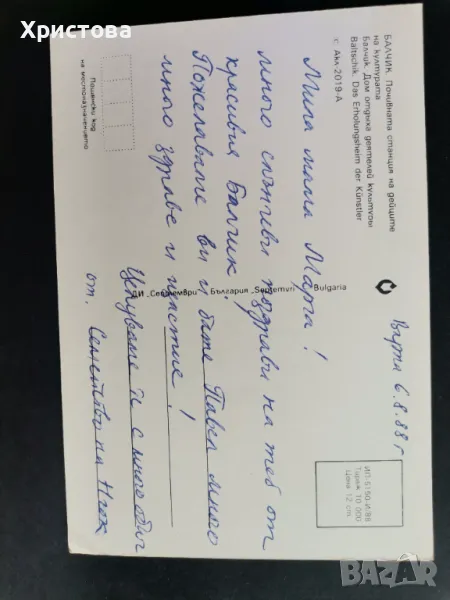 Христова
БАЛЧИК. Почивната станция на дейците
на културата
Балчик. Дом отдыха деятелей культуры
Baltschik. Das Erholungsheim der Künstler
© Акл-2019-А
Варна 6.8.88 г
Мила леля Марга!
много слънчеви поздрави на теб от
красивия Балчик.
Пожелаваме ви и бате Павел много
много здраве и щастие!
Целуваме ви с много обич
от. Семейство на
ДИ „Септември“ България „Septemvri“ Bulgaria
Пощенски код
на местоназначението
ИП-5150-И/88
Тираж 10 000
Цена 12 ст.
BAZAR